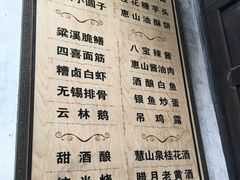 小圆子
粱溪脆鳝
四喜面筋
糟卤白虾
无锡排骨
云林鹅
甜酒酿
花糖芋头
惠山油酥饼
八宝辣酱
惠山酱油肉
酒酿白鱼
银鱼炒蛋
吊鸡露
慧山泉桂花酒
腊月老黄酒